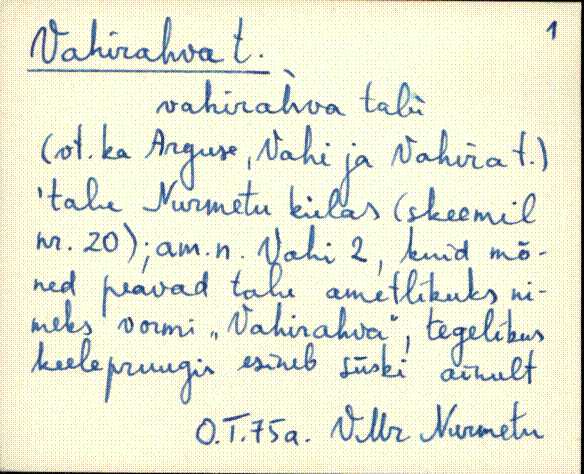 1
Vahirahva t.
vahirahva talu
(vt. ka Arguse, Vahi ja Vahira t.)
'talu Nurmetu külas (skeemil
nr. 20); am. n. Vahi 2, kuid mõ-
ned peavad talu ametlikuks ni-
meks vormi „Vahirahva", tegelikus
keelepruugis esineb siiski ainult
O.T. 75a. VMr Nurmetu